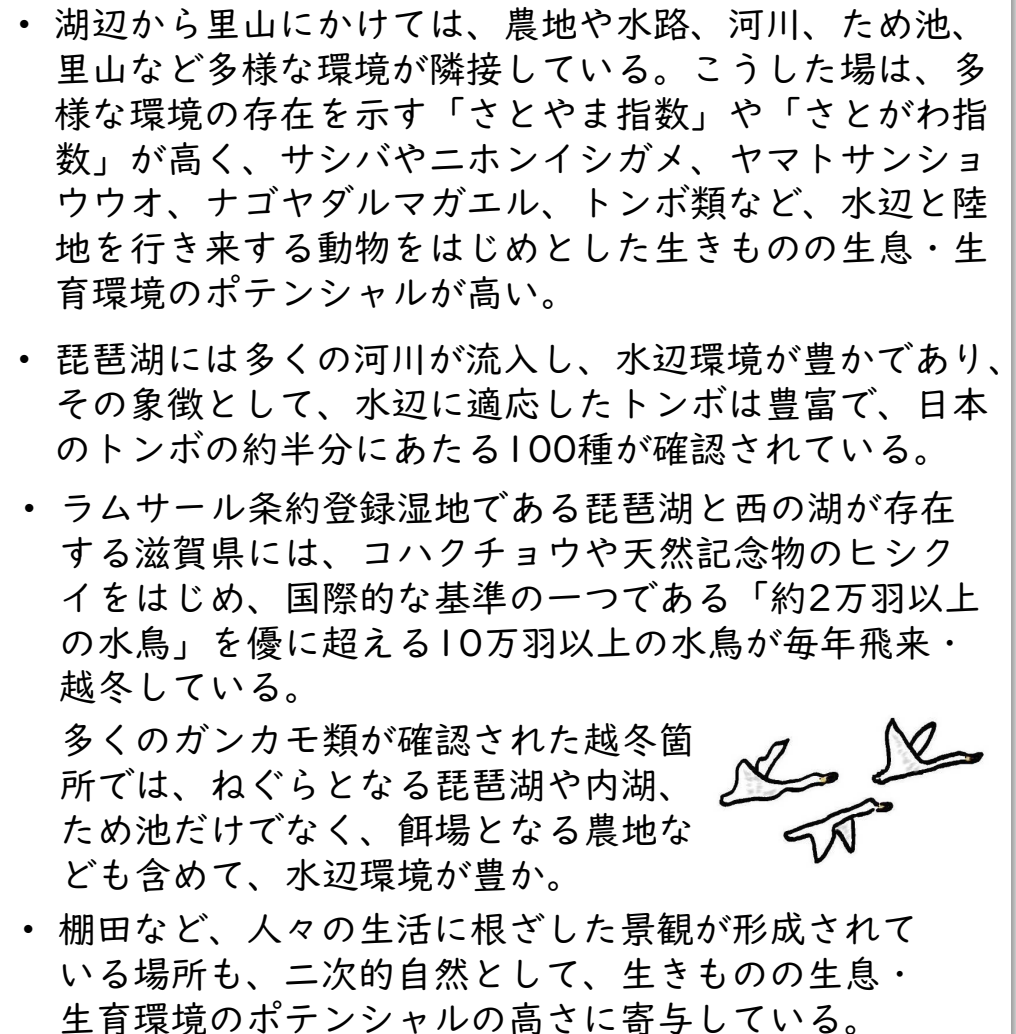 ・湖辺から里山にかけては、農地や水路、河川、ため池、
里山など多様な環境が隣接している。こうした場は、多
様な環境の存在を示す「さとやま指数」や「さとがわ指
数」が高く、サシバやニホンイシガメ、ヤマトサンショ
ウウオ、ナゴヤダルマガエル、トンボ類など、水辺と陸
地を行き来する動物をはじめとした生きものの生息・生
育環境のポテンシャルが高い。
・琵琶湖には多くの河川が流入し、水辺環境が豊かであり、
その象徴として、水辺に適応したトンボは豊富で、日本
のトンボの約半分にあたる100種が確認されている。
・ラムサール条約登録湿地である琵琶湖と西の湖が存在
する滋賀県には、コハクチョウや天然記念物のヒシク
イをはじめ、国際的な基準の一つである「約2万羽以上
の水鳥」を優に超える10万羽以上の水鳥が毎年飛来・
越冬している。
多くのガンカモ類が確認された越冬箇
所では、ねぐらとなる琵琶湖や内湖、
ため池だけでなく、餌場となる農地な
ども含めて、水辺環境が豊か。
・棚田など、人々の生活に根ざした景観が形成されて
いる場所も、二次的自然として、生きものの生息・
生育環境のポテンシャルの高さに寄与している。